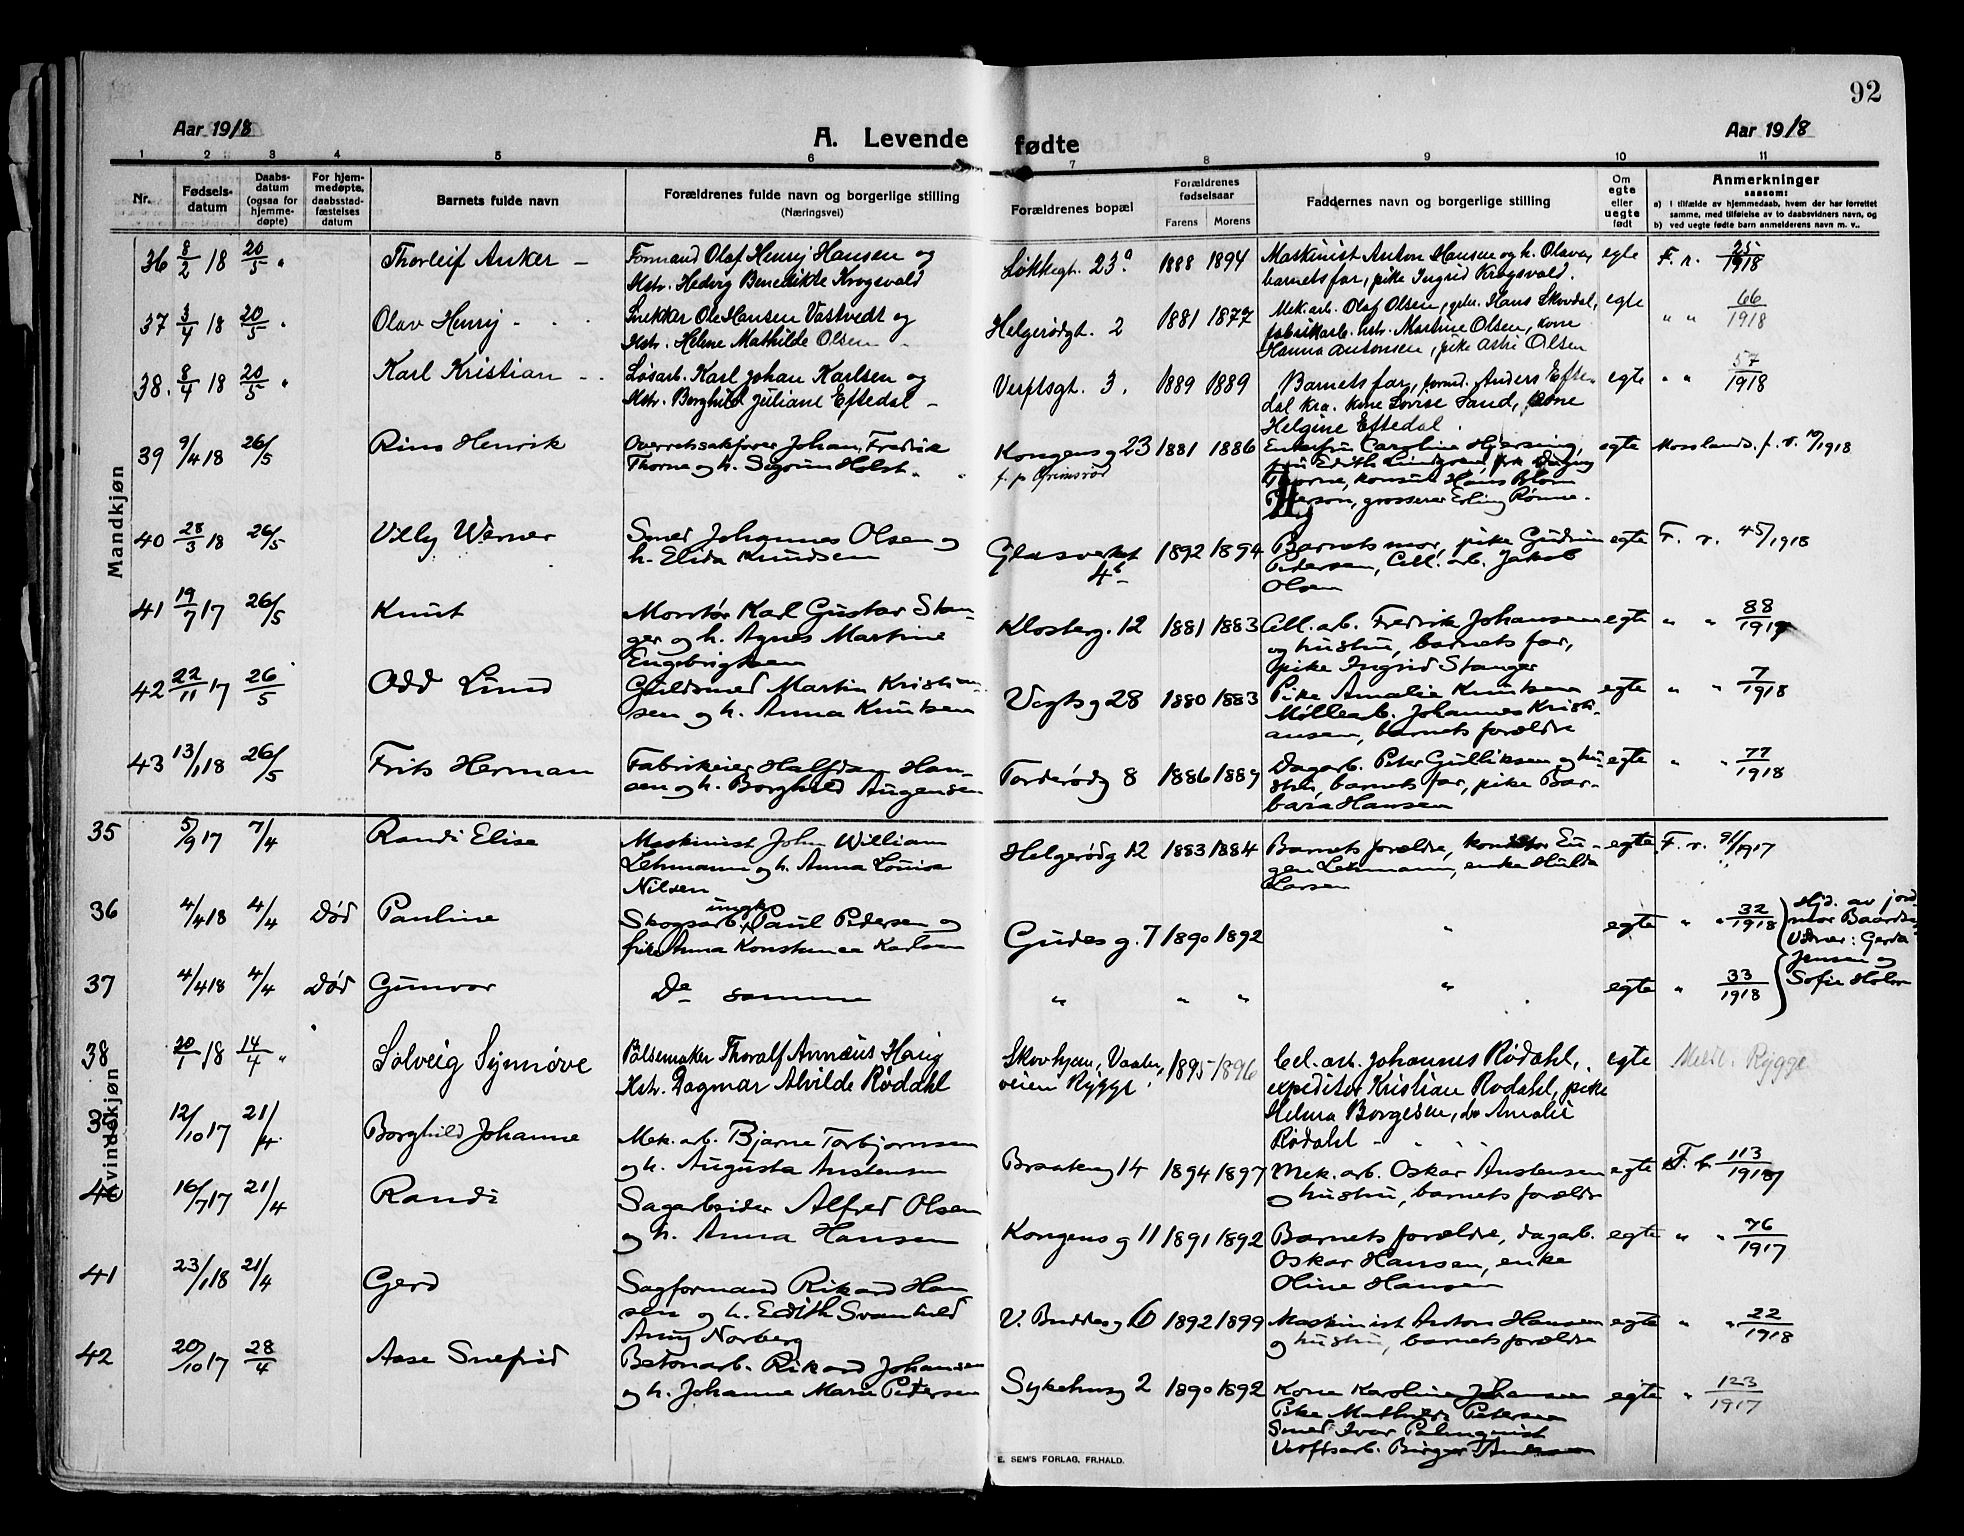 92
Aar 1918
A. Levende fødte
Aar 1918
1 2 3 4 5 6 7 8 9 10 11
Nr.
Fødsels-
datum
Daabs-
datum
(ogsaa for
hjemme-
døpte)
For hjem-
medøpte,
daabsstad-
fæstelses
datum
Barnets fulde navn
Forældrenes fulde navn og borgerlige stilling
(Næringsvei)
Forældrenes bopæl
Forældrenes
fødselsaar
Farens Morens
Faddernes navn og borgerlige stilling
Om
egte
eller
uegte
født
Anmerkninger
saasom:
a) i tilfælde av hjemmedaab, hvem der har forrettet
samme, med tilføielse av to daabsvidners navn, og
b) ved uegte fødte barn anmelderens navn m. v..
Mandkjøn
36 8/2 18 20/5 "
Thorleif Anker -
Formand Olaf Henry Hansen og
Hstr. Hedvig Benedikte Krogsvold
Løkkegt. 23a.
1888 1894
Maskinist Anton Hansen og h. Olava,
barnets far, pike Ingrid Krogsvold.
egte
F. r. 25/1918
37 3/4 18 20/5 "
Olav Henry - . .
Snekker Ole Hansen Vastvedt og
Hstr. Helene Mathilde Olsen
Helgerødgt. 2
1881 1877
Mek. arb. Olaf Olsen, Hans Skovdal,
fabrikarb. hstr. Martine Olsen, kone
Hanna Antonsen, pike Astri Olsen
egte
" " 66/1918
38. 8/4 18 20/5 "
Karl Kristian - . .
Løsarb. Karl Johan Karlsen og
Hstr. Borghild Juliane Eftedal -
Verftsgt. 3.
1889 1889
Barnets far, form. Anders Efte-
dal kra. kone Lovise Sand, kone
Helgine Eftedal.
egte
" " 57/1918
39 9/4 18 26/5
Rino Henrik
Overretssakfører Johan Fredrik
Thorne og h. Sigrun Holst.
Kongens g 23
1881 1886
Enkefru Caroline Hjersing,
fru Edith Lindgren, frk Dagny
Thorne, konsul Hans Blom
Peterson, grosserer Erling Rønne.
egte
Mosslands. f. r. /1918
40 28/3 18 26/5
Villy Werner
Smed Johannes Olsen og
h. Elida Knudsen
Glasverket
4b
1892 1894
Barnets mor, pike Gudrun
Pedersen, Cell. arb. Jakob
Olsen
egte
F. r. 45/1918
41 19/7 17 26/5
Knut
Montør Karl Gustav Stan-
ger og h. Agnes Martine
Engebrigtsen
Klosterg. 12
1881 1883
Cell. arb. Fredrik Johansen
og hustru, barnets far,
pike Ingrid Stanger
egte
" " 88/1917
42 22/11 17 26/5
Odd Lund
Guldsmed Martin Kristian-
sen og h. Anna Knutsen
Vogts g 28
1880 1883
Pike Amalie Knutsen
Møllearb. Johannes Kristi-
ansen, barnets forældre
egte
" " 7/1918
43 13/1 18 26/5
Frits Herman
Fabrikeier Halfdan Han-
sen og h. Borghild Augensen
Torderødg 8
1886 1889
Dagarb. Peter Gulliksen og hu-
stru, barnets far, pike Bar-
bara Hansen
egte
" " 77/1918
Kvindekjøn
35 5/9 17 7/4
Randi Elise
Maskinist John William
Lehmann og h. Anna Lovise
Nilsen
Helgerødg 12
1883 1884
Barnets forældre, konditor Eu-
gen Lehmann, enke Hulda
Larsen
egte
F. r. 91/1917
36 4/4 18 4/4 Død
Pauline
Skogsarb. ungk. Paul Pedersen og
pike Anna Konstance Karlsen
Gudes g. 7
1890 1892
"
egte
" " 32/1918
Hjd. av jord-
mor Baardsg
Vidner: Gerda
Jensen og
Sofie Holm
37 4/4 18 4/4 Død
Gunvor
De samme
" " "
"
egte
" 33/1918
38 20/1 18 14/4 "
Solveig Synnøve
Pølsemaker Thoralf Annæus Haug
Hstr. Dagmar Alvilde Rødahl
Skovhjem, Vaaler-
veien Rygge.
1895 1896
Cel. arb. Johannes Rødahl,
expeditør Kristian Rødahl, pike
Helma Borgesen, do Amalie
Rødahl -
egte
Meldt. Rygge
39 12/10 17 21/4
Borghild Johanne
Mek. arb. Bjarne Torbjørnsen
og h. Augusta Anstensen
Braateng 14
1894 1897
Mek. arb. Oskar Anstensen
og hustru, barnets forældre
egte
F. r. 113/1917
40 16/7 17 21/4
Randi
Sagarbeider Alfred Olsen
og h. Anna Hansen
Kongens g 11
1891 1892
Barnets forældre, dagarb.
Oskar Hansen, enke
Oline Hansen
egte
" " 76/1917
41 23/1 18 21/4
Gerd
Sagformand Rikard Han-
sen og h. Edith Svanhild
Anny Norberg
V. Buddes g 6
1892 1899
Maskinist Anton Hansen
og hustru, barnets forældre
egte
" " 22/1918
42 20/10 17 28/4
Aase Snefrid
Betonarb. Rikard Johansen
og h. Johanne Marie Petersen
Sykehusg 2
1890 1892
Kone Karoline Johansen
Pike Mathilde Petersen
Smed Ivar Palmquist
Verftsarb. Birger Andersen
egte
" 123/1917
E. SEM'S FORLAG, FR.HALD.